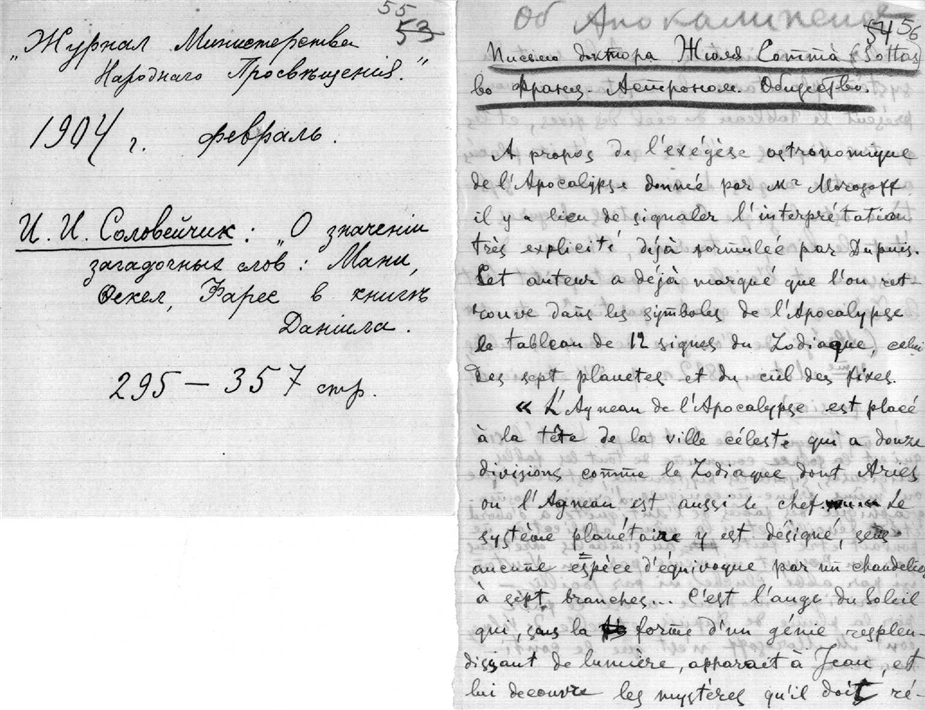 55
53
„Журнал Министерства
Народнаго Просвѣщенія.“
1904 г. февраль.
И. И. Соловейчик: „О значеніи
загадочных слов: Мани,
Фекел, Фарес в книгѣ
Даніила.
295 — 357 стр.
Об Апокалипсисе
54 56
Письмо доктора Жюля Сотта (Sottas)
во Франц. Астроном. Общество.
A propos de l'exégèse astronomique
de l'Apocalypse donnée par Mr Morozoff
il y a lieu de signaler l'interprétation
très explicité, déjà formulée par Dupuis.
Cet auteur a déjà marqué que l'on ret-
rouve dans les symboles de l'Apocalypse
le tableau de 12 signes du Zodiaque, celui
des sept planetes et du ciel des fixes.
« L'Agneau de l'Apocalypse est placé
à la tête de la ville céleste qui a douze
divisions comme le Zodiaque dont Aries
ou l'Agneau est aussi le chef. Le
système planétaire y est désigné, sens
aucune espèce d'équivoque par un chandelier
à sept branches... C'est l'ange du Soleil
qui, sous la forme d'un génie resplen-
dissant de lumière, apparait à Jean, et
lui decouvre les mystères qu'il doit ré-